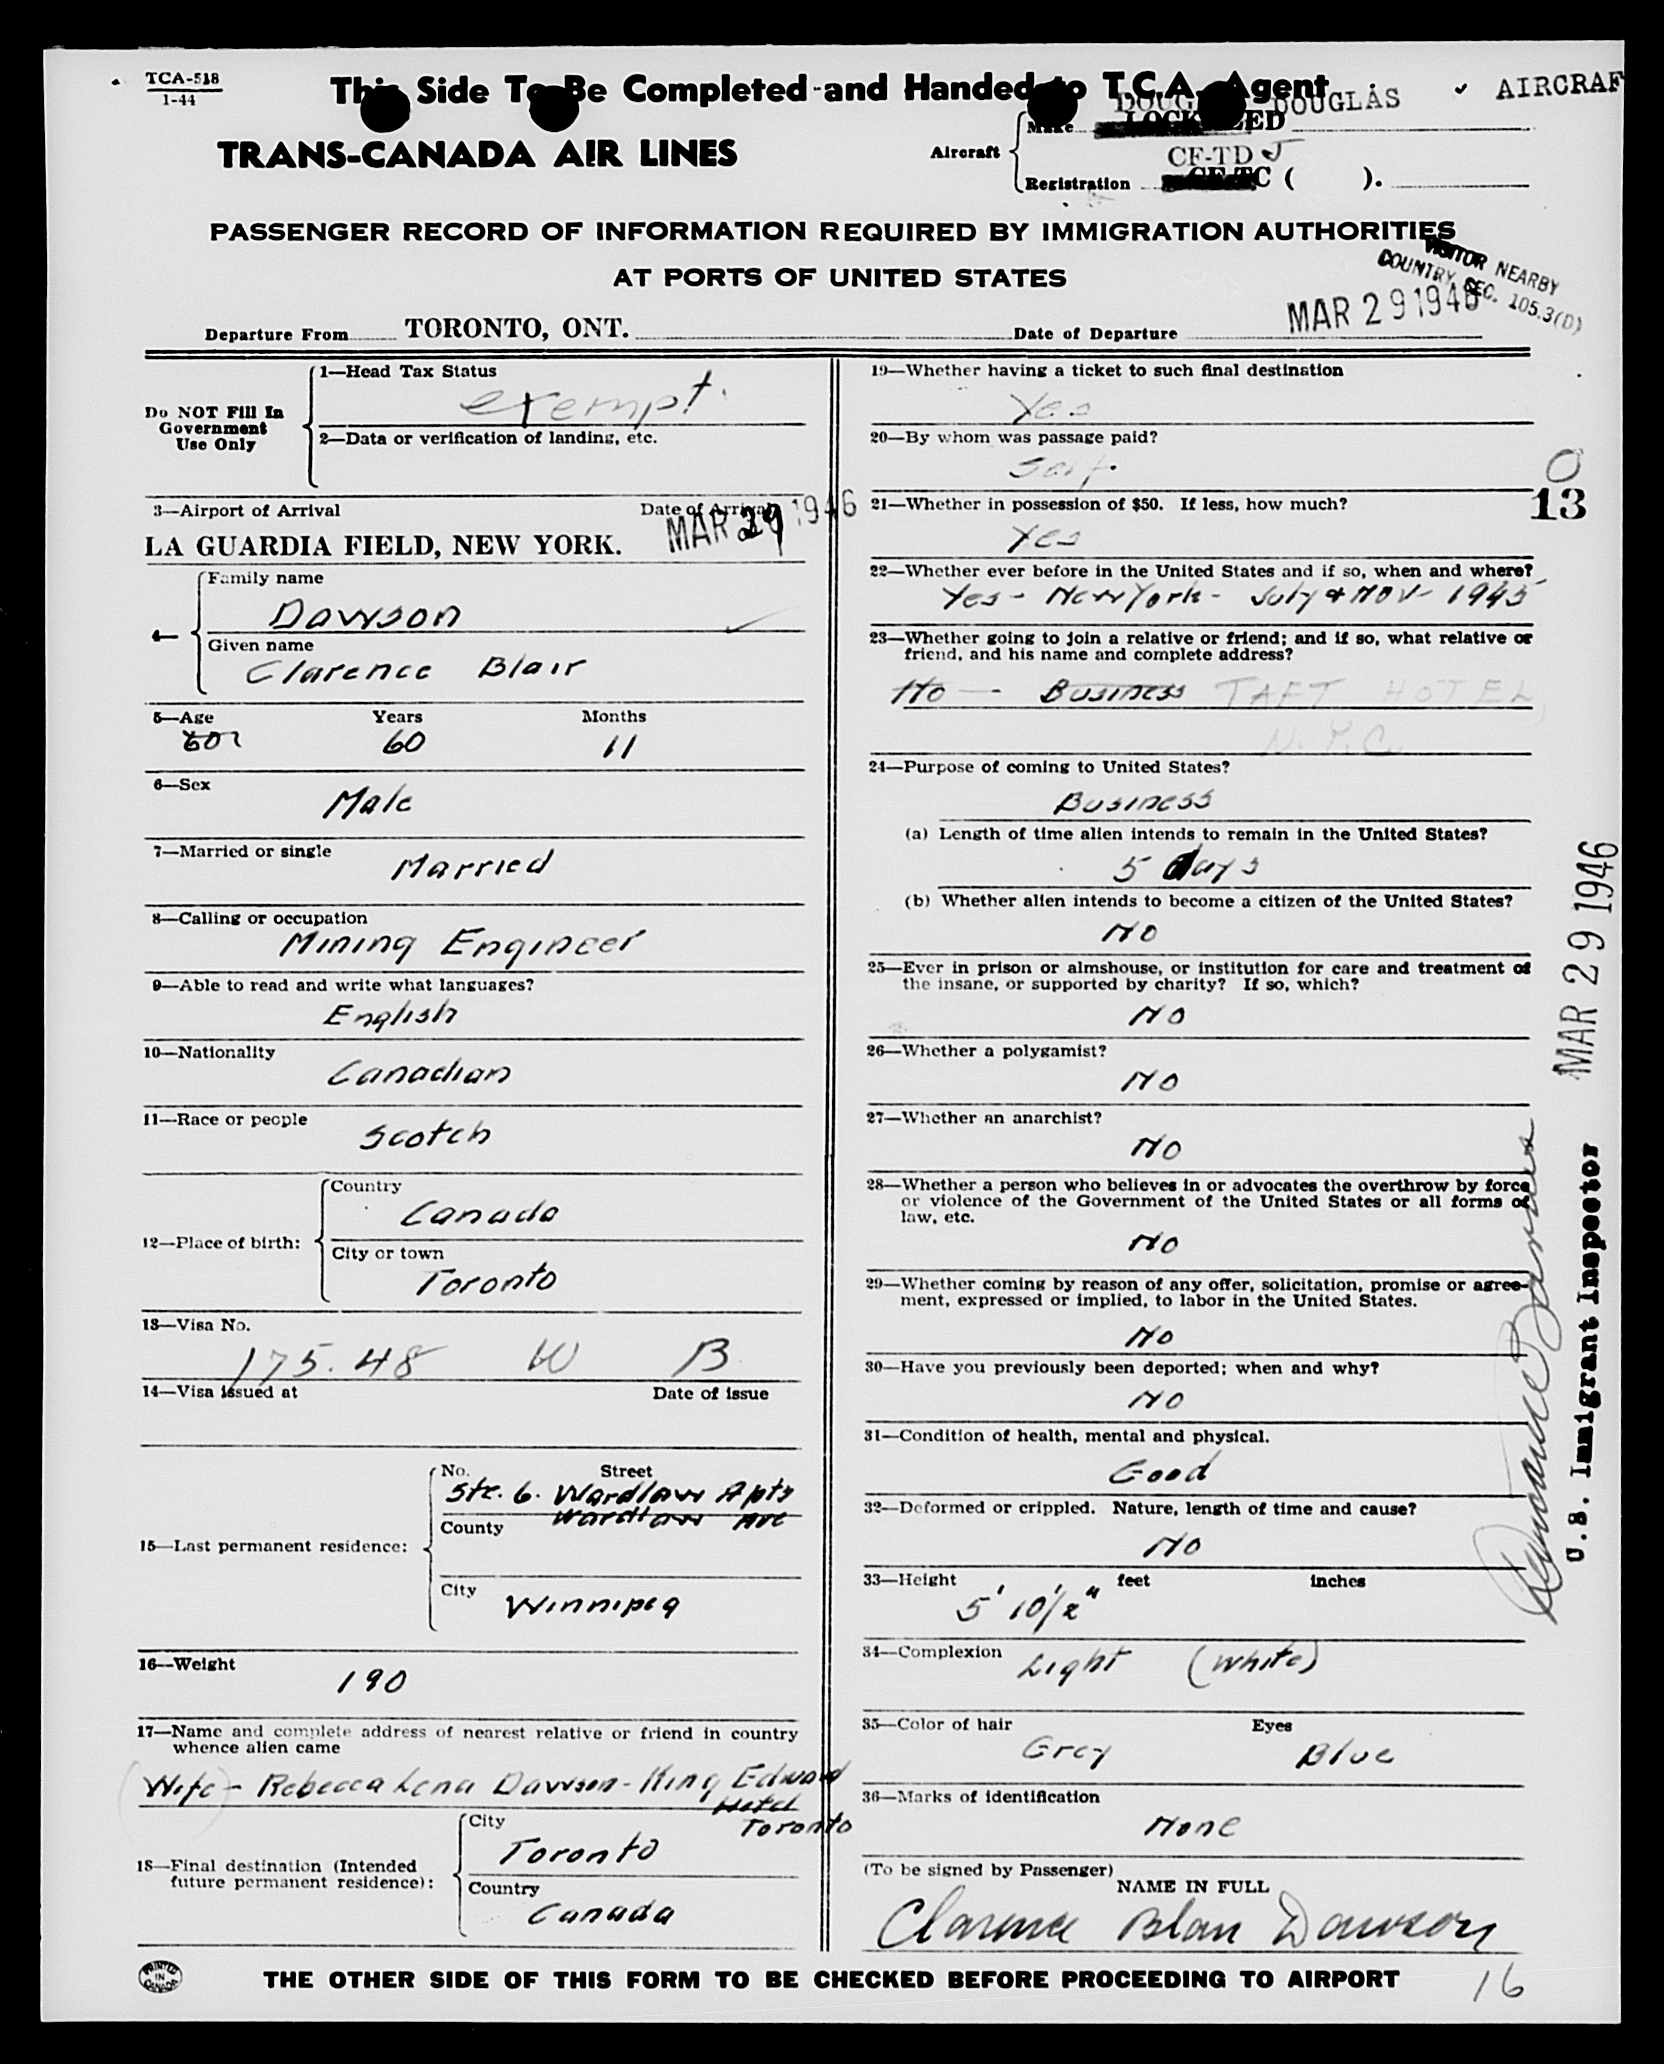 TCA-518
1-44
This Side To Be Completed and Handed to T.C.A. Agent
DOUGLAS AIRCRAF
TRANS-CANADA AIR LINES
Aircraft
Make LOCKHEED
CF-TD J
Registration CF-TC ( ).
PASSENGER RECORD OF INFORMATION REQUIRED BY IMMIGRATION AUTHORITIES
AT PORTS OF UNITED STATES
VISITOR NEARBY
COUNTRY SEC. 105.3(D)
Departure From TORONTO, ONT. Date of Departure MAR 29 1946
Do NOT Fill In
Government
Use Only
1—Head Tax Status
exempt.
2—Data or verification of landing, etc.
3—Airport of Arrival Date of Arrival
LA GUARDIA FIELD, NEW YORK. MAR 29 1946
4—
Family name
Dawson
Given name
Clarence Blair
5—Age Years Months
60 60 11
6—Sex
Male
7—Married or single
Married
8—Calling or occupation
Mining Engineer
9—Able to read and write what languages?
English
10—Nationality
Canadian
11—Race or people
Scotch
12—Place of birth:
Country
Canada
City or town
Toronto
13—Visa No.
175.48 W B
14—Visa issued at Date of issue
15—Last permanent residence:
No. Street
Ste. 6. Wardlaw Apts
Wardlaw Ave
County
City
Winnipeg
16—Weight
190
17—Name and complete address of nearest relative or friend in country
whence alien came
Wife - Rebecca Lena Dawson - King Edward
Hotel
Toronto
18—Final destination (Intended
future permanent residence):
City
Toronto
Country
Canada
19—Whether having a ticket to such final destination
Yes
20—By whom was passage paid?
Self.
0
13
21—Whether in possession of $50. If less, how much?
Yes
22—Whether ever before in the United States and if so, when and where?
Yes - New York - July & Nov - 1945
23—Whether going to join a relative or friend; and if so, what relative or
friend, and his name and complete address?
No — Business TAFT HOTEL
N.Y.C.
24—Purpose of coming to United States?
Business
(a) Length of time alien intends to remain in the United States?
5 days
(b) Whether alien intends to become a citizen of the United States?
No
25—Ever in prison or almshouse, or institution for care and treatment of
the insane, or supported by charity? If so, which?
No
26—Whether a polygamist?
No
27—Whether an anarchist?
No
28—Whether a person who believes in or advocates the overthrow by force
or violence of the Government of the United States or all forms of
law, etc.
No
29—Whether coming by reason of any offer, solicitation, promise or agree-
ment, expressed or implied, to labor in the United States.
No
30—Have you previously been deported; when and why?
No
31—Condition of health, mental and physical.
Good
32—Deformed or crippled. Nature, length of time and cause?
No
33—Height feet inches
5' 10 1/2"
34—Complexion
Light (White)
35—Color of hair Eyes
Grey Blue
36—Marks of identification
None
(To be signed by Passenger)
NAME IN FULL
Clarence Blair Dawson
MAR 29 1946
U.S. Immigrant Inspector
PRINTED IN CANADA
THE OTHER SIDE OF THIS FORM TO BE CHECKED BEFORE PROCEEDING TO AIRPORT
16